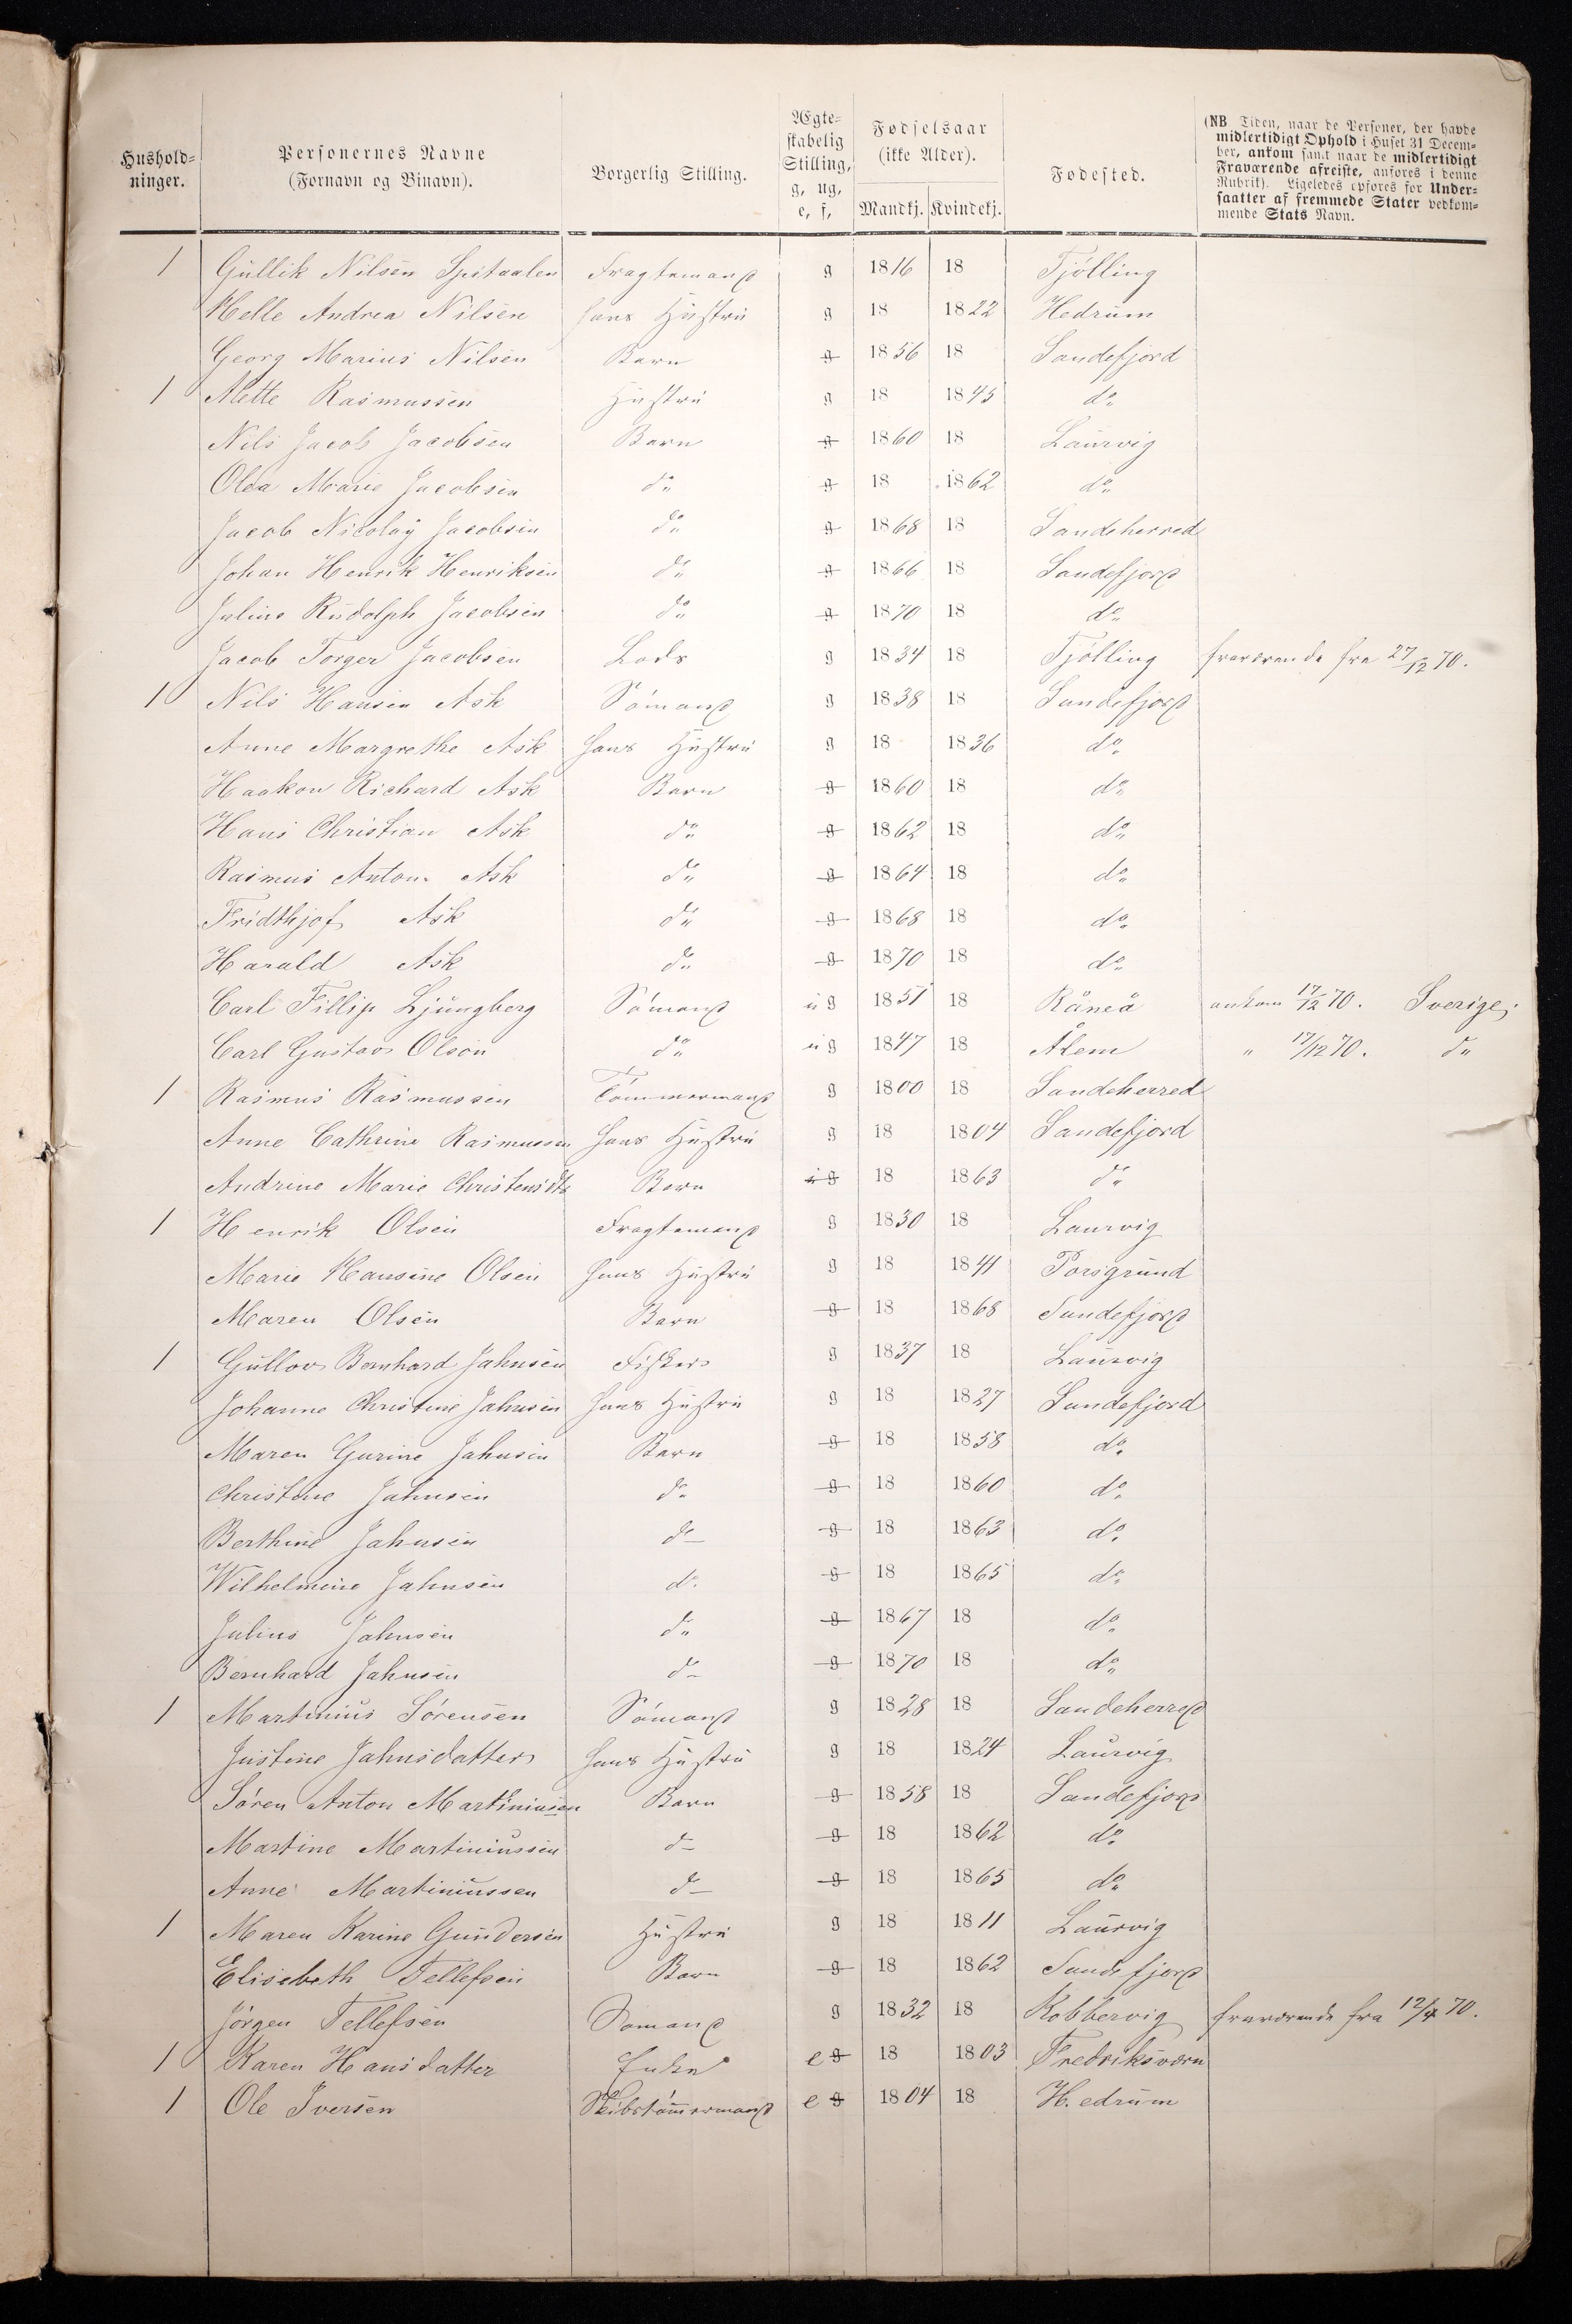 Hushold-
ninger.
Personernes Navne
(Fornavn og Binavn).
Borgerlig Stilling.
Ægte-
skabelig
Stilling,
g, ug,
e, f,
Fødselsaar
(ikke Alder).
Mandkj. Kvindekj.
Fødested.
(NB Tiden, naar de Personer, der havde
midlertidigt Ophold i Huset 31 Decem-
ber, ankom samt naar de midlertidigt
Fraværende afreiste, anføres i denne
Rubrik). Ligeledes opføres for Under-
saatter af fremmede Stater vedkom-
mende Stats Navn.
1 Gullik Nilsen Spitaalen Fragtemand g 1816 18 Tjølling
Helle Andrea Nilsen hans Hustru g 18 1822 Hedrum
Georg Marius Nilsen Barn g 1856 18 Sandefjord
1 Mette Rasmussen Hustru g 18 1845 do
Nils Jacob Jacobsen Barn g 1860 18 Laurvig
Olea Marie Jacobsen do g 18 1862 do
Jacob Nicolay Jacobsen do g 1868 18 Sandeherred
Johan Henrik Henriksen do g 1866 18 Sandefjord
Julius Rudolph Jacobsen do g 1870 18 do
Jacob Torger Jacobsen Lods g 1834 18 Tjølling fraværende fra 27/12 70.
1 Nils Hansen Ask Sömand g 1838 18 Sandefjord
Anne Margrethe Ask hans Hustru g 18 1836 do
Haakon Richard Ask Barn g 1860 18 do
Hans Christian Ask do g 1862 18 do
Rasmus Anton Ask do g 1864 18 do
Fridthjof Ask do g 1868 18 do
Harald Ask do g 1870 18 do
Carl Fillip Ljungberg Sömand ug 1851 18 Råneå ankom 17/12 70. Sverige
Carl Gustav Olson do ug 1847 18 Ålem " 17/12 70. do
1 Rasmus Rasmussen Tömmermand g 1800 18 Sandeherred
Anne Cathrine Rasmussen hans Hustru g 18 1804 Sandefjord
Andrine Marie Christensdtr Barn ug 18 1863 do
1 Henrik Olsen Fragtemand g 1830 18 Laurvig
Marie Hansine Olsen hans Hustru g 18 1841 Porsgrund
Maren Olsen Barn g 18 1868 Sandefjord
1 Gullov Bernhard Jahnsen Fisker g 1837 18 Laurvig
Johanne Christine Jahnsen hans Hustru g 18 1827 Sandefjord
Maren Gurine Jahnsen Barn g 18 1858 do
Christine Jahnsen do g 18 1860 do
Berthine Jahnsen do g 18 1863 do
Wilhelmine Jahnsen do g 18 1865 do
Julius Jahnsen do g 1867 18 do
Bernhard Jahnsen do g 1870 18 do
1 Martinius Sörensen Sömand g 1828 18 Sandeherred
Justine Jahnsdatter hans Hustru g 18 1824 Laurvig
Sören Anton Martiniusen Barn g 1858 18 Sandefjord
Martine Martiniussen do g 18 1862 do
Anne Martiniussen do g 18 1865 do
1 Maren Karine Gundersen Hustru g 18 1811 Laurvig
Elisebeth Tellefsen Barn g 18 1862 Sandefjord
Jörgen Tellefsen Sömand g 1832 18 Kobbervig fraværende fra 12/4 70.
1 Karen Hansdatter Enke e g 18 1803 Fredriksværn
1 Ole Iversen Skibstömmermand e g 1804 18 Hedrum